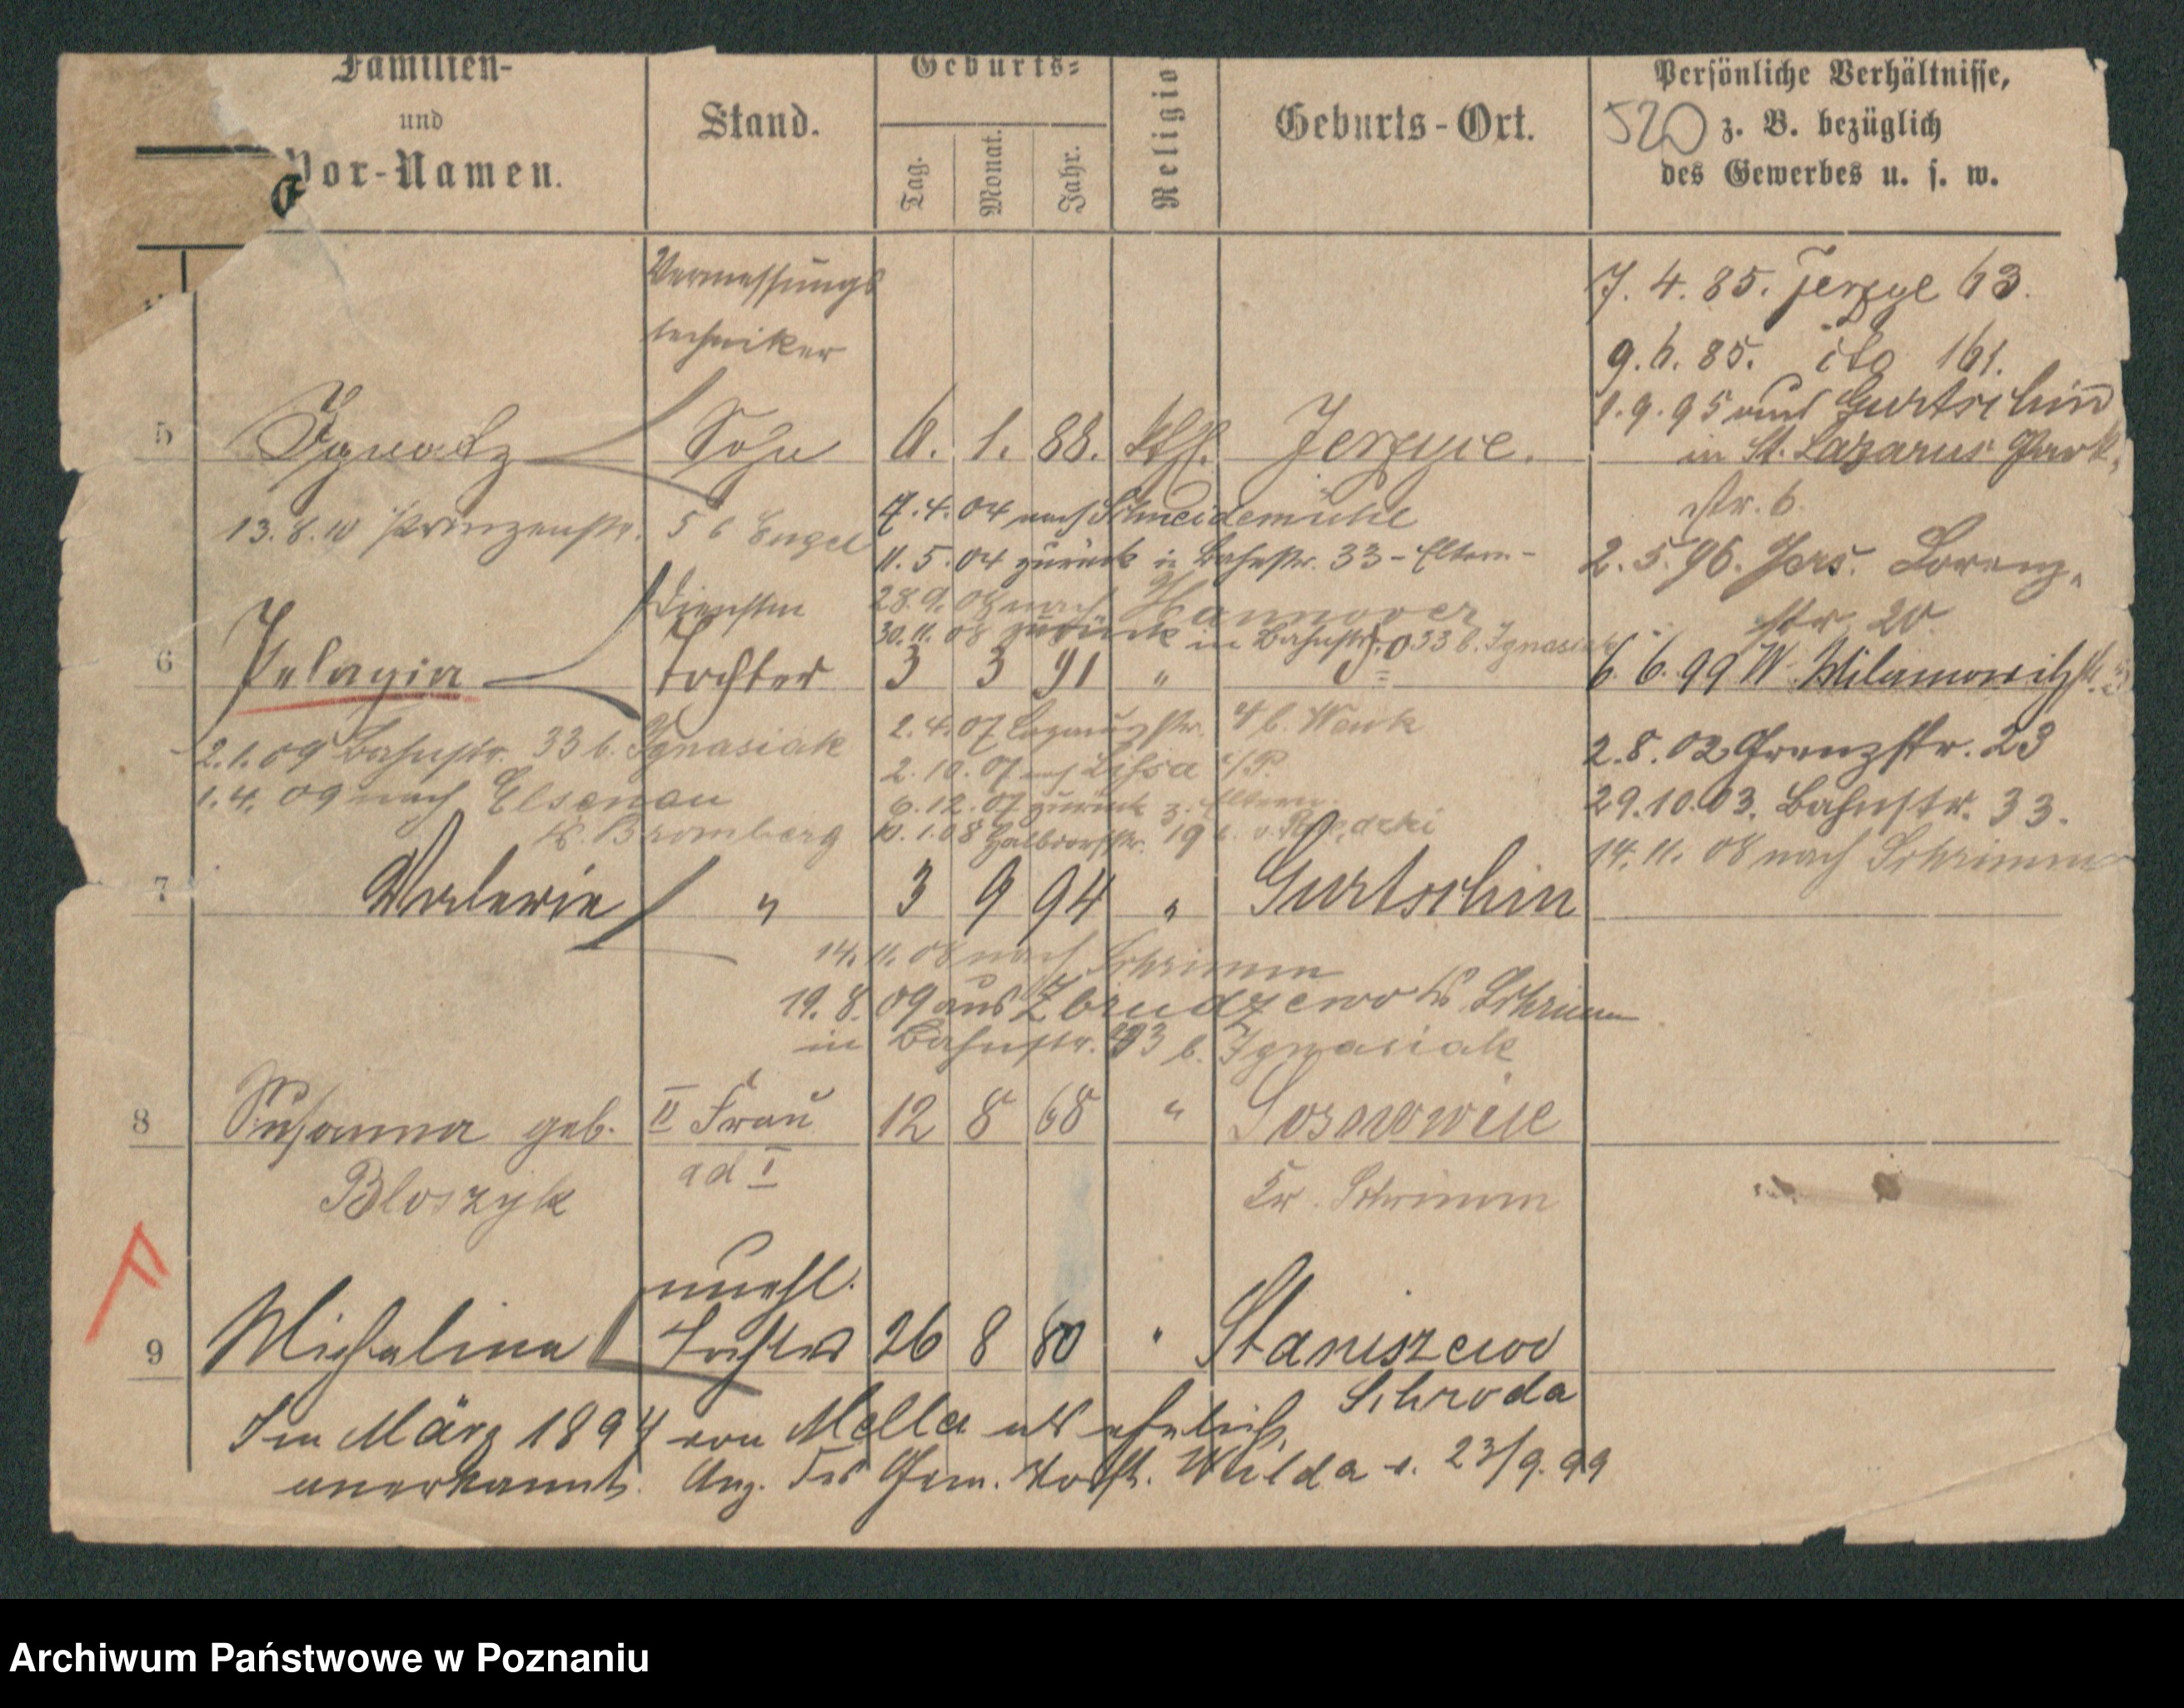 Familien-
und
Vor-Namen.
Stand.
Geburts-
Tag.
Monat.
Jahr.
Religio
Geburts-Ort.
Persönliche Verhältnisse,
520 z. B. bezüglich
des Gewerbes u. s. w.
Vermessungs
techniker
7. 4. 85. Jerzyce 63.
9. 6. 85. ito 161.
1. 9. 95 aus Gurtschin
in St. Lazarus Park
str. 6.
5 Ignatz Sohn 6. 1. 88. kth. Jerzyce.
13. 8. 10 Prinzenstr. 56 Engel
7. 4. 04 nach Schneidemühl
11. 5. 04 zurück in Bahnstr. 33 - Eltern -
2. 5. 96. Lorenz-
str. 20
28. 9. 08 nach Hannover
30. 11. 08 zurück in Bahnstr. 33 b. Ignasiak
6. 6. 99 W. Wilamowitzstr.
6 Pelagia Tochter 3 3 91 "
2. 1. 09 Bahnstr. 33 b. Ignasiak
1. 4. 09 nach Elsenau
Kr. Bromberg
2. 4. 07 Lazarusstr. b. Wenk
2. 10. 07 nach Lissa i/P.
6. 12. 07 zurück z. Eltern
10. 1. 08 Halbdorfstr. 19
2. 8. 02 Grenzstr. 23
29. 10. 03. Bahnstr. 33.
14. 11. 08 nach Schrimm
7 Valerie " 3 9 94 " Gurtschin
14. 11. 08 nach Schrimm
19. 8. 09 aus Zbrudzewo Kr Schrimm
in Bahnstr. 33 b. Ignasiak
8 Susanna geb. II Frau 12 8 68 " Sosnowiec
Bloszyk ad I Kr. Schrimm
unehl.
9 Michalina Tochter 26 8 80 " Staniszewo
Schroda
Im März 1894 von Mella als ehelich
anerkannt. Anz. des Gem. Vorst. Wilda v. 23/9. 99
Archiwum Państwowe w Poznaniu